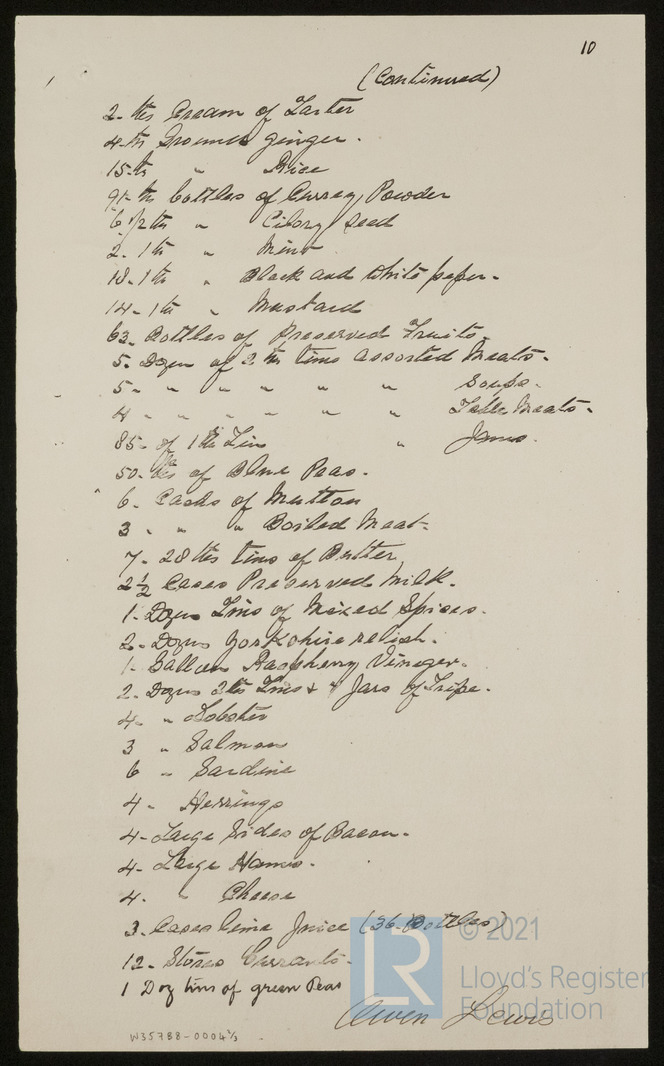 10
(Continued)
2. lbs Cream of Tarter
4. lb Ground ginger.
15. lb " Rice
lb bottles of Currey Powder
6 1/2 lb " Cilory Seed
2. 1 lb " Mint
18. 1 lb " Black and White peper.
14. 1 lb " Mustard
63. Bottles of Preserved Fruits.
5. Dozn of 2. lbs tins assorted Meats.
5 " " " " " " Soups.
4 " " " " " " Table Meats.
85. of 1 lb Tin " Jams.
50. lbs of Blue Peas.
6. Casks of Mutton
3 " " " Boiled Meat.
7. 28 lbs tins of Butter
2 1/2 Cases Preserved Milk.
1. Dozn Tins of Mixed Spices.
2. Dozns Yorkshire relish.
1. Gallon Raspberry Vineger.
2. Dozns 2 lbs Tins & Jars of Tripe.
4. " Lobster
3 " Salmon
6 " Sardine
4. " Herrings
4. Large Sides of Bacon.
4. Large Hams.
4. " Cheese
3. Cases lime Juice (36. Bottles)
12. Stones Currants.
1 Doz tins of green Peas
Owen Lewis
W35788-0004 2/3
LR © 2021
Lloyd's Register
Foundation